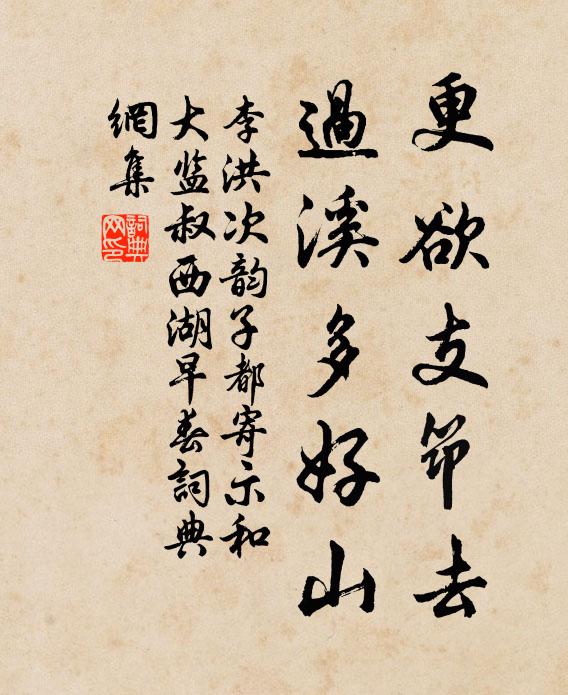 更欲支筇去
過溪多好山
李洪次韵子都寄示和
大监叔西湖早春詞典
網集
詞典
网印